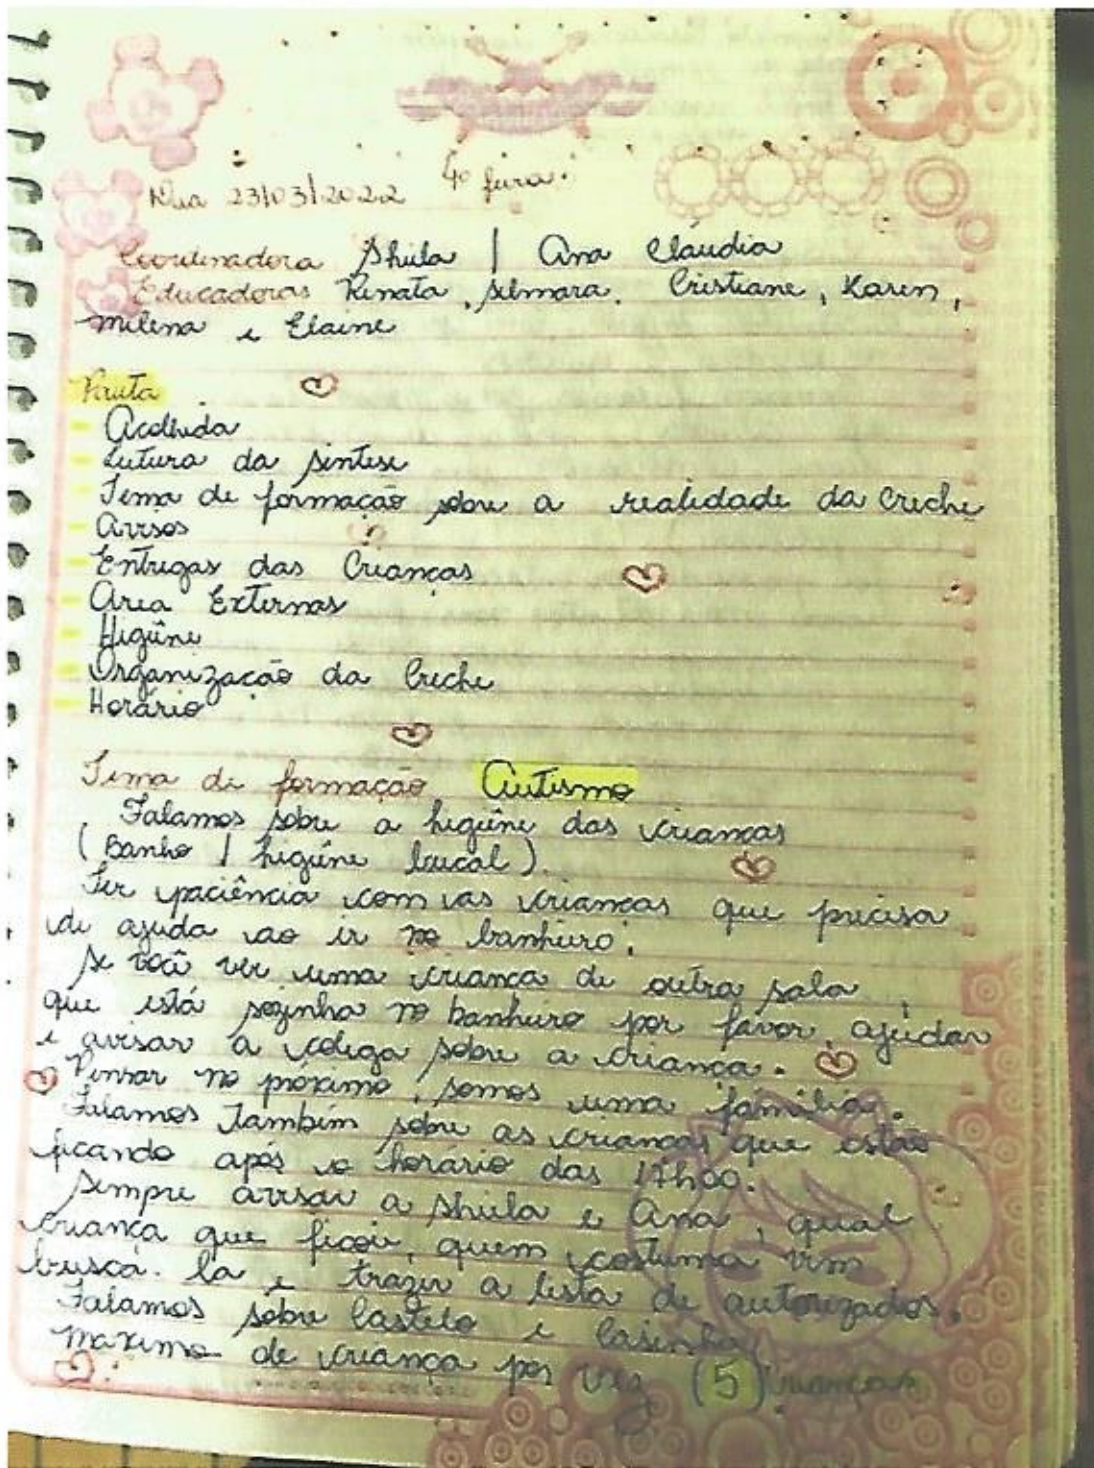 Dia 23/03/2022 4º feira.
Coordenadora Shiila | Ana Cláudia
Educadoras Renata, Silmara. Cristiane, Karen,
Milena e Elaine
Pauta
- Acolhida
- Leitura da sintese
- Tema de formação sobre a realidade da Creche
- Avisos
- Entregas das Crianças
- Area Externas
- Higiêne
- Organização da Creche
- Horário
Tema de formação Autismo
Falamos sobre a higiêne das crianças
(Banho / higiêne bucal).
Ter paciência com as crianças que precisa
de ajuda ao ir no banheiro.
Se você ver uma criança de outra sala,
que está sozinha no banheiro por favor, ajudar
e avisar a colega sobre a criança.
Pensar no próximo, somos uma família.
Falamos também sobre as crianças que estão
ficando após o horário das 17h00.
Sempre avisar a Shiila e Ana, qual
criança que ficou, quem costuma vim
buscá-la e trazer a lista de autorizados.
Falamos sobre Castelo e Casinha
maximo de criança por vez (5) crianças